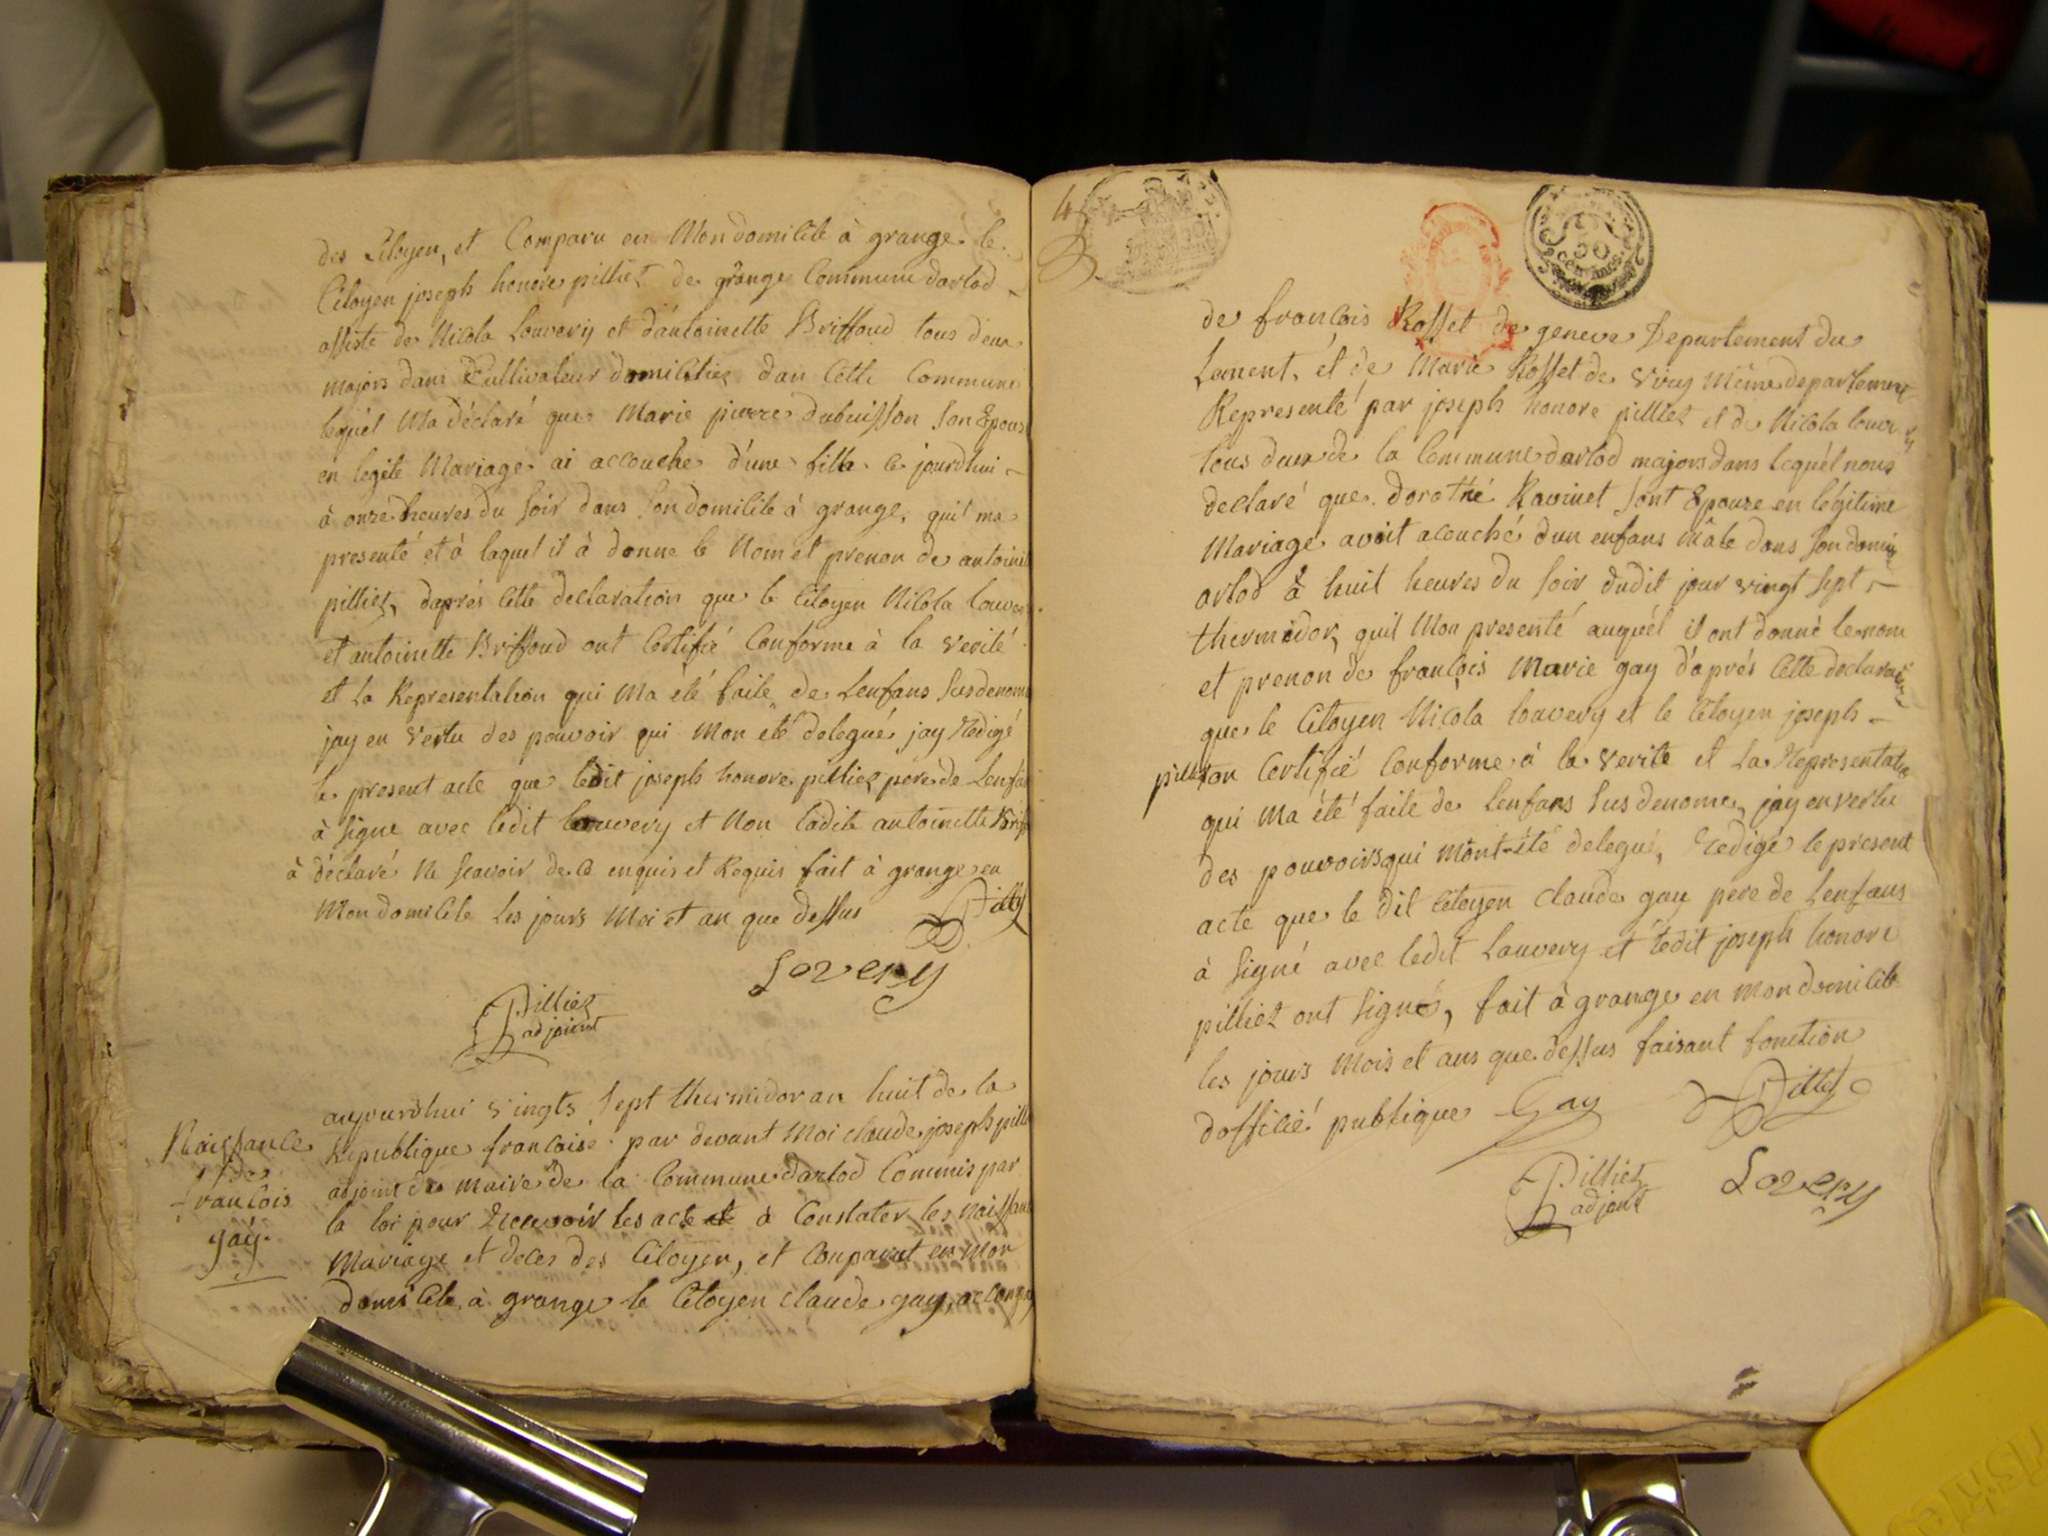 des Citoyen, et Comparu en Mon domicile à grange le
Citoyen joseph honore pilliez de grange Commune darlod
assiste de Nicola Louvery et d'antoinette Briffoud tous deux
majors dans Cultivateur domicilies dan Cette Commune
lequel Ma déclaré que Marie pierre dubuisson Son Epouse
en legite Mariage ai accouche d'une fille ce jourdhui
à onze heures du Soir dans Son domicile à grange, quil ma
presenté et à laquel il à donne le Nom et prenon de antoinet
pilliez, daprés Cette declaration que le Citoyen Nicola louver
et antoinette Briffoud ont Certifié Conforme à la verité
et la Representation qui Ma été faite de Lenfans Susdenome
jay en vertu des pouvoir qui Mon été delegué, jay Redigé
le present acte que ledit joseph honore pilliez pere de Lenfan
à Signe avec ledit louvery et Non Ladite antoinette Brif
à déclaré Ne Scavoir de ce enquis et Requis fait à grange en
Mon domicile Les jours Moi et an que dessus
Lovery
Pilliez
adjoint
aujourdhui vingts Sept thermidor an huit de la
Naissance Republique francoise par devant Moi claude joseph pilli
des adjoint du maire de la Commune darlod Commis par
francois la loi pour Recevoir les acte à Constater les Naissans
gay. Mariage et deces des Citoyen, et Comparut en Mon
domicile à grange le Citoyen claude gay, accompag
4
50
centimes
de francois Rosset de geneve Departement du
Lement, et de Marie Rosset de viry Même departement
Representé par joseph honore pilliez et de Nicola louvery
tous deux de la Commune darlod majors dans lequél nous
declaré que dorothé Ravinet Sont Epouze en légitime
Mariage avoit acouché dun enfans Mâle dans Son domici
arlod à huit heures du Soir dudit jour vingt Sept
thermidor, quil Mon presenté auquél il ont donné le nom
et prenon de francois Marie gay d'aprés Cette declaration
que le Citoyen Nicola louvery et le Citoyen joseph
pilliez on Certifié Conforme à la verite et La Representatio
qui Ma été faite de Lenfans Sus denome, jay en vertu
des pouvoirs qui mont été delegué, Redigé le present
acte que le dit Citoyen claude gay pere de Lenfans
à Signé avec ledit Louvery et ledit joseph honore
pilliez ont Signé, fait à grange en Mon domicile
les jours Mois et ans que dessus faisant fonction
dofficié publique Gay
Pilliez
adjoint
Lovery